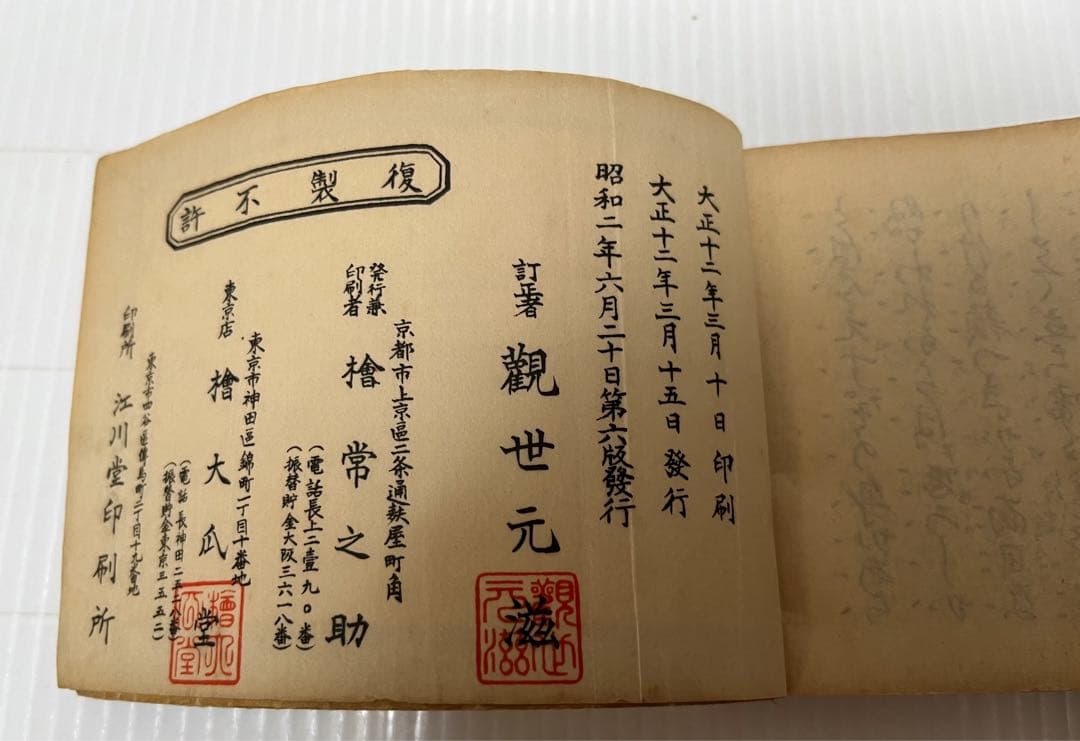 大正十二年三月十日印刷
大正十二年三月十五日發行
昭和二年六月二十日第六版發行
訂正著 觀世元滋
觀世元滋
復製不許
京都市上京區二条通麩屋町角
發行兼印刷者 檜常之助
(電話長上二壹九〇番)
(振替貯金大阪三六一八番)
東京市神田區錦町一丁目十番地
東京店 檜大瓜堂
檜大瓜堂
(電話長神田二五二八番)
(振替貯金東京三五五二)
東京市四谷區傳馬町二丁目十九番地
印刷所 江川堂印刷所